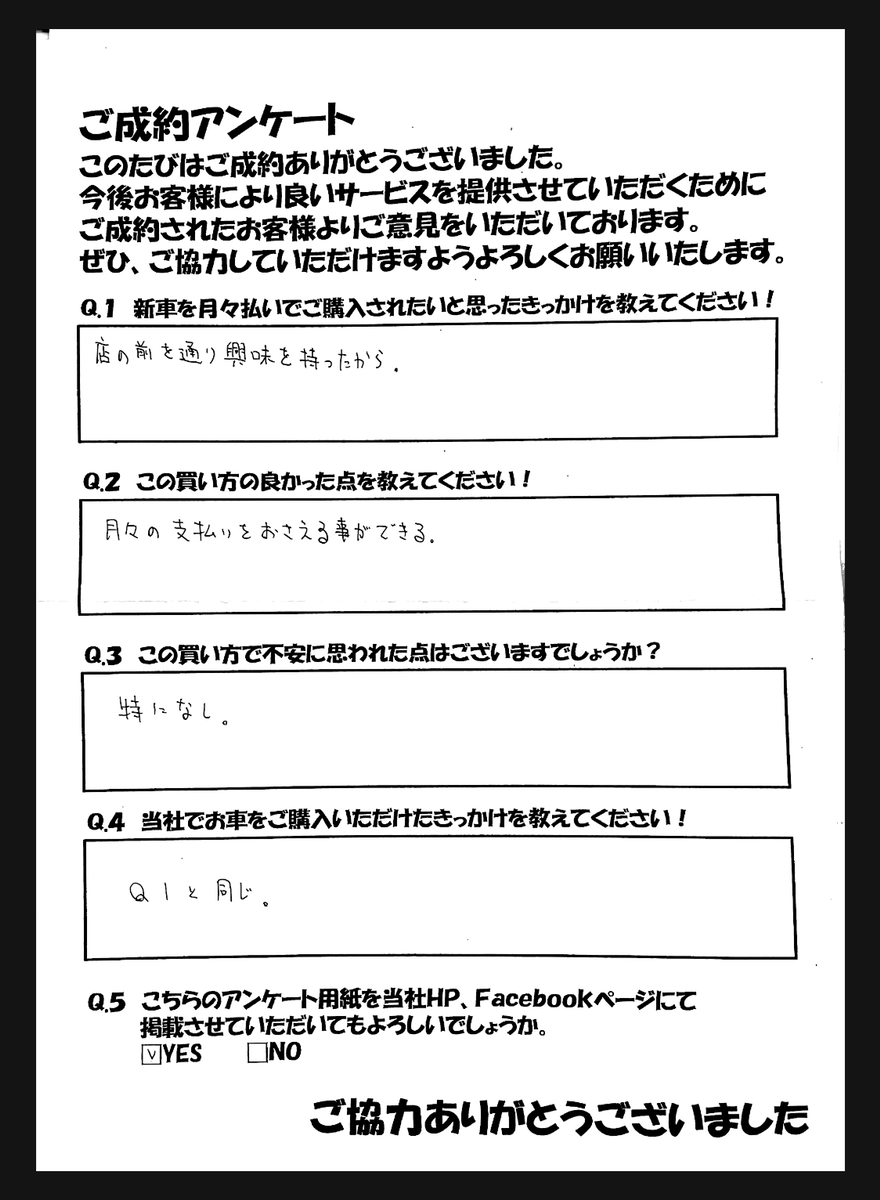 ご成約アンケート
このたびはご成約ありがとうございました。
今後お客様により良いサービスを提供させていただくために
ご成約されたお客様よりご意見をいただいております。
ぜひ、ご協力していただけますようよろしくお願いいたします。
Q.1 新車を月々払いでご購入されたいと思ったきっかけを教えてください！
店の前を通り興味を持ったから.
Q.2 この買い方の良かった点を教えてください！
月々の支払いをおさえる事ができる.
Q.3 この買い方で不安に思われた点はございますでしょうか？
特になし。
Q.4 当社でお車をご購入いただけたきっかけを教えてください！
Q1と同じ。
Q.5 こちらのアンケート用紙を当社HP、Facebookページにて
掲載させていただいてもよろしいでしょうか。
☑YES □NO
ご協力ありがとうございました